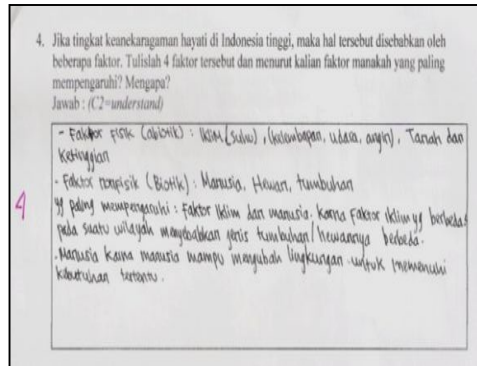 4. Jika tingkat keanekaragaman hayati di Indonesia tinggi, maka hal tersebut disebabkan oleh
beberapa faktor. Tulislah 4 faktor tersebut dan menurut kalian faktor manakah yang paling
mempengaruhi? Mengapa?
Jawab : (C2=understand)
- Faktor Fisik (abiotik) : Iklim (suhu), (kelembapan, udara, angin), Tanah dan
Ketinggian
- Faktor nonfisik (Biotik) : Manusia, Hewan, tumbuhan
4
yg paling mempengaruhi : Faktor Iklim dan manusia. Karna Faktor iklim yg berbeda
pada suatu wilayah menyebabkan jenis tumbuhan/hewannya berbeda.
- Manusia karna manusia mampu mengubah lingkungan untuk memenuhi
kebutuhan tertentu.